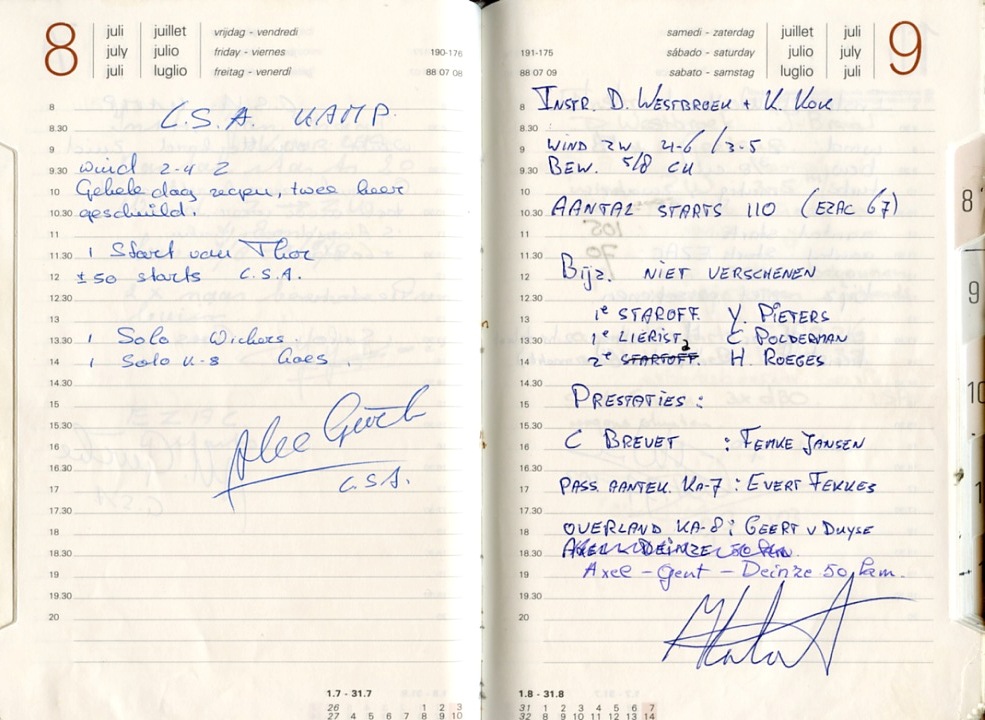 8
juli juillet vrijdag - vendredi
july julio friday - viernes 190-176
juli luglio freitag - venerdì 88 07 08
8
C.S.A. KAMP.
8.30
9
wind 2-4 Z
9.30
Gehele dag regen, twee keer
10
geschuild.
10.30
11
1 Start van Thor
11.30
± 50 starts C.S.A.
12
12.30
13
1 Solo Wickers.
13.30
1 Solo K-8 Goes.
14
14.30
15
15.30
16
16.30
C.S.A.
17
17.30
18
18.30
19
19.30
20
1.7 - 31.7
26 1 2 3
27 4 5 6 7 8 9 10
samedi - zaterdag juillet juli
sábado - saturday julio july
sabato - samstag luglio juli
9
191-175
88 07 09
8 INSTR. D. WESTBROEK + K. KOK
8.30
9 WIND ZW 4-6 / 3-5
9.30 BEW. 5/8 CU
10
10.30 AANTAL STARTS 110 (EZAC 67)
11
11.30
12 Bijz. NIET VERSCHENEN
12.30
13 1e STAROFF. Y. PIETERS
13.30 1e LIERIST C. POLDERMAN
14 2e STARTOFF. H. ROEGES
14.30
15 PRESTATIES :
15.30
16 C BREVET : FEMKE JANSEN
16.30
17 PASS. AANTEK. KA-7 : EVERT FEKKES
17.30
18 OVERLAND KA-8 : GEERT v DUYSE
18.30 AXEL DEINZE 50 km.
19 Axel - Gent - Deinze 50 km.
19.30
20
1.8 - 31.8
31 1 2 3 4 5 6 7
32 8 9 10 11 12 13 14
8
9
10